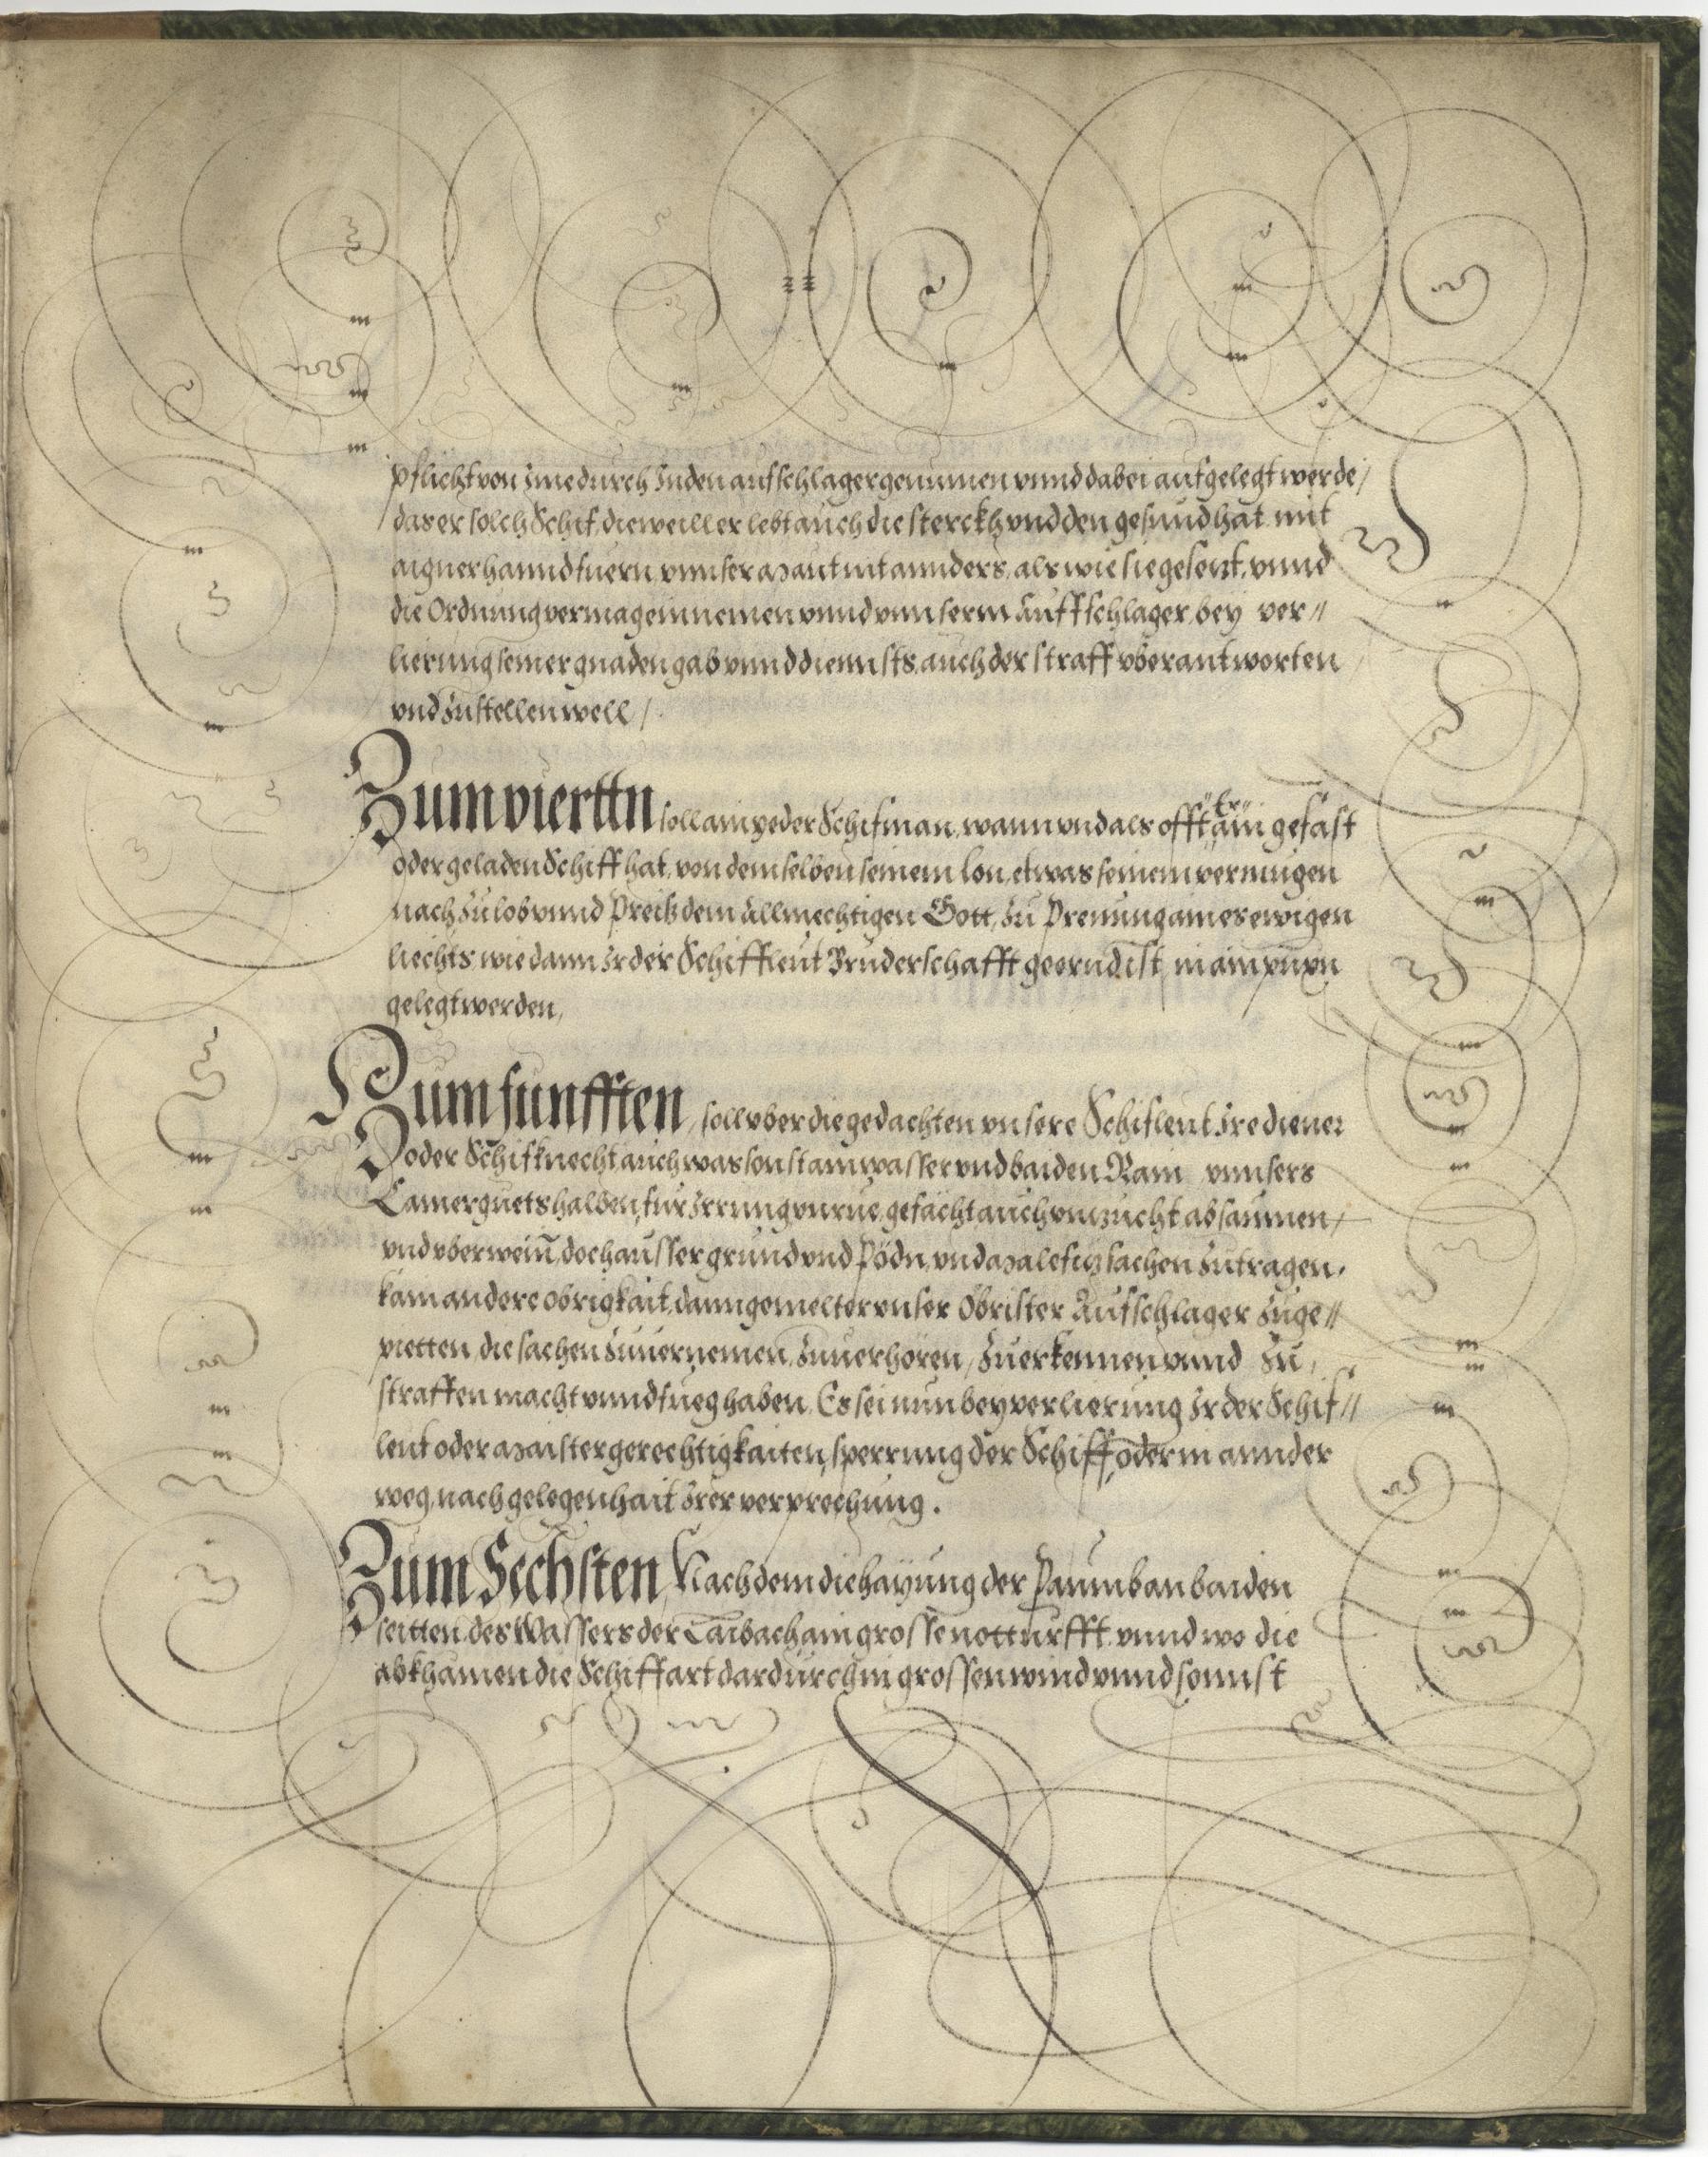 pflicht von Ime durch Inden aufschlager genumen vnnd dabei aufgelegt werde /
das er solch Schif, dieweill er lebt auch die sterckh vnd den gesund hat mit
aigner hannd fuern, vnnser Maut nit annders, als wie sie gesetzt, vnnd
die Ordnung vermag einnemen vnnd vnnserm Auffschlager, bey ver//
lierung seiner gnadengab vnnd diennsts, auch der straff vberantworten
vnd zustellen well /
Zum vierttn soll ain yeder Schifman, wann vnd als offt er ain gefast
oder geladen Schiff hat, von demselben seinem lon, etwas seinem vermugen
nach zu lob vnnd Preiß dem Allmechtigen Gott, zu Prenung aines ewigen
liechts wie dann Ir der Schiffleut Bruderschafft geornd ist, in ain püxn
gelegt werden,
Zum funfften, soll vber die gedachten vnsere Schifleut Ire diener
oder Schifknecht auch was sonst am wasser vnd baiden Rain vnnsers
Camerguets halben, fur Irrung vnrue, gefächt auch vnzucht absaumen /
vnd vberweiñ, doch ausser grund vnd Pödn, vnd Malefitz sachen zutragen,
kain andere obrigkait, dann gemelter vnser Obrister Aufschlager zuge//
pietten, die sachen zuuernemen, zuuerhören / zu erkennen vnnd zu
straffen macht vnnd fueg haben, Es sei nun bey verlierung Ir der Schif//
leut oder Maister gerechtigkaiten, sperrung der Schiff, oder in annder
weg, nach gelegenhait Irer verprechung.
Zum Sechsten, Nachdem die hayung der Paum ban baiden
seitten des Wassers der Laibach ain grosse notturfft, vnnd wo die
abkhamen die Schiffart dardurch in grossen wind vnnd sonnst